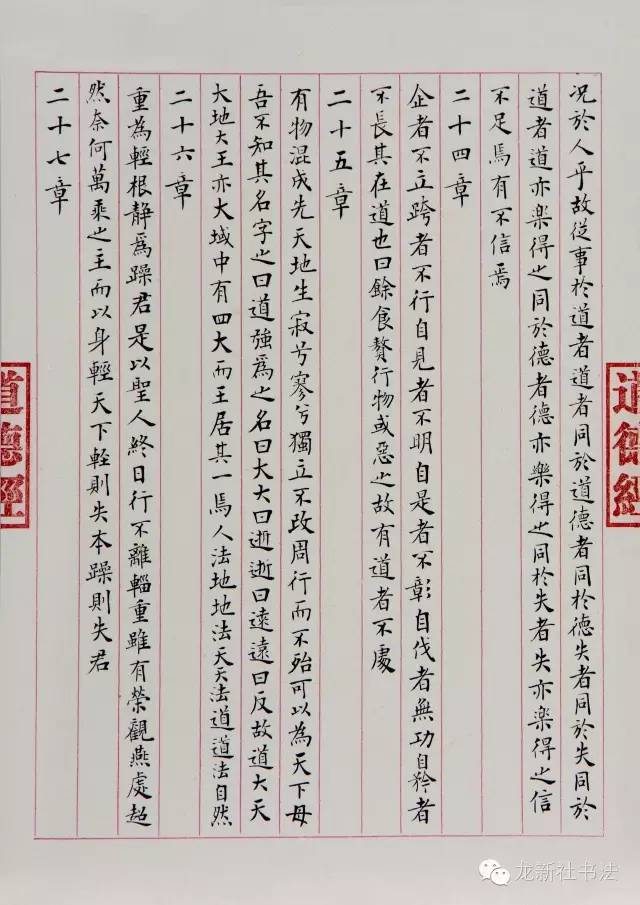 况於人乎故從事於道者道者同於道德者同於德失者同於失同於
道者道亦楽得之同於德者德亦楽得之同於失者失亦楽得之信
不足焉有不信焉
二十四章
企者不立跨者不行自見者不明自是者不彰自伐者無功自矜者
不長其在道也曰餘食贅行物或惡之故有道者不處
二十五章
有物混成先天地生寂兮寥兮獨立不改周行而不殆可以為天下母
吾不知其名字之曰道強爲之名曰大大曰逝逝曰遠遠曰反故道大天
大地大王亦大域中有四大而王居其一焉人法地地法天天法道道法自然
二十六章
重為輕根静爲躁君是以聖人終日行不離輜重雖有榮觀燕處超
然奈何萬乘之主而以身輕天下輕則失本躁則失君
二十七章
道德經
道德經
龙新社书法